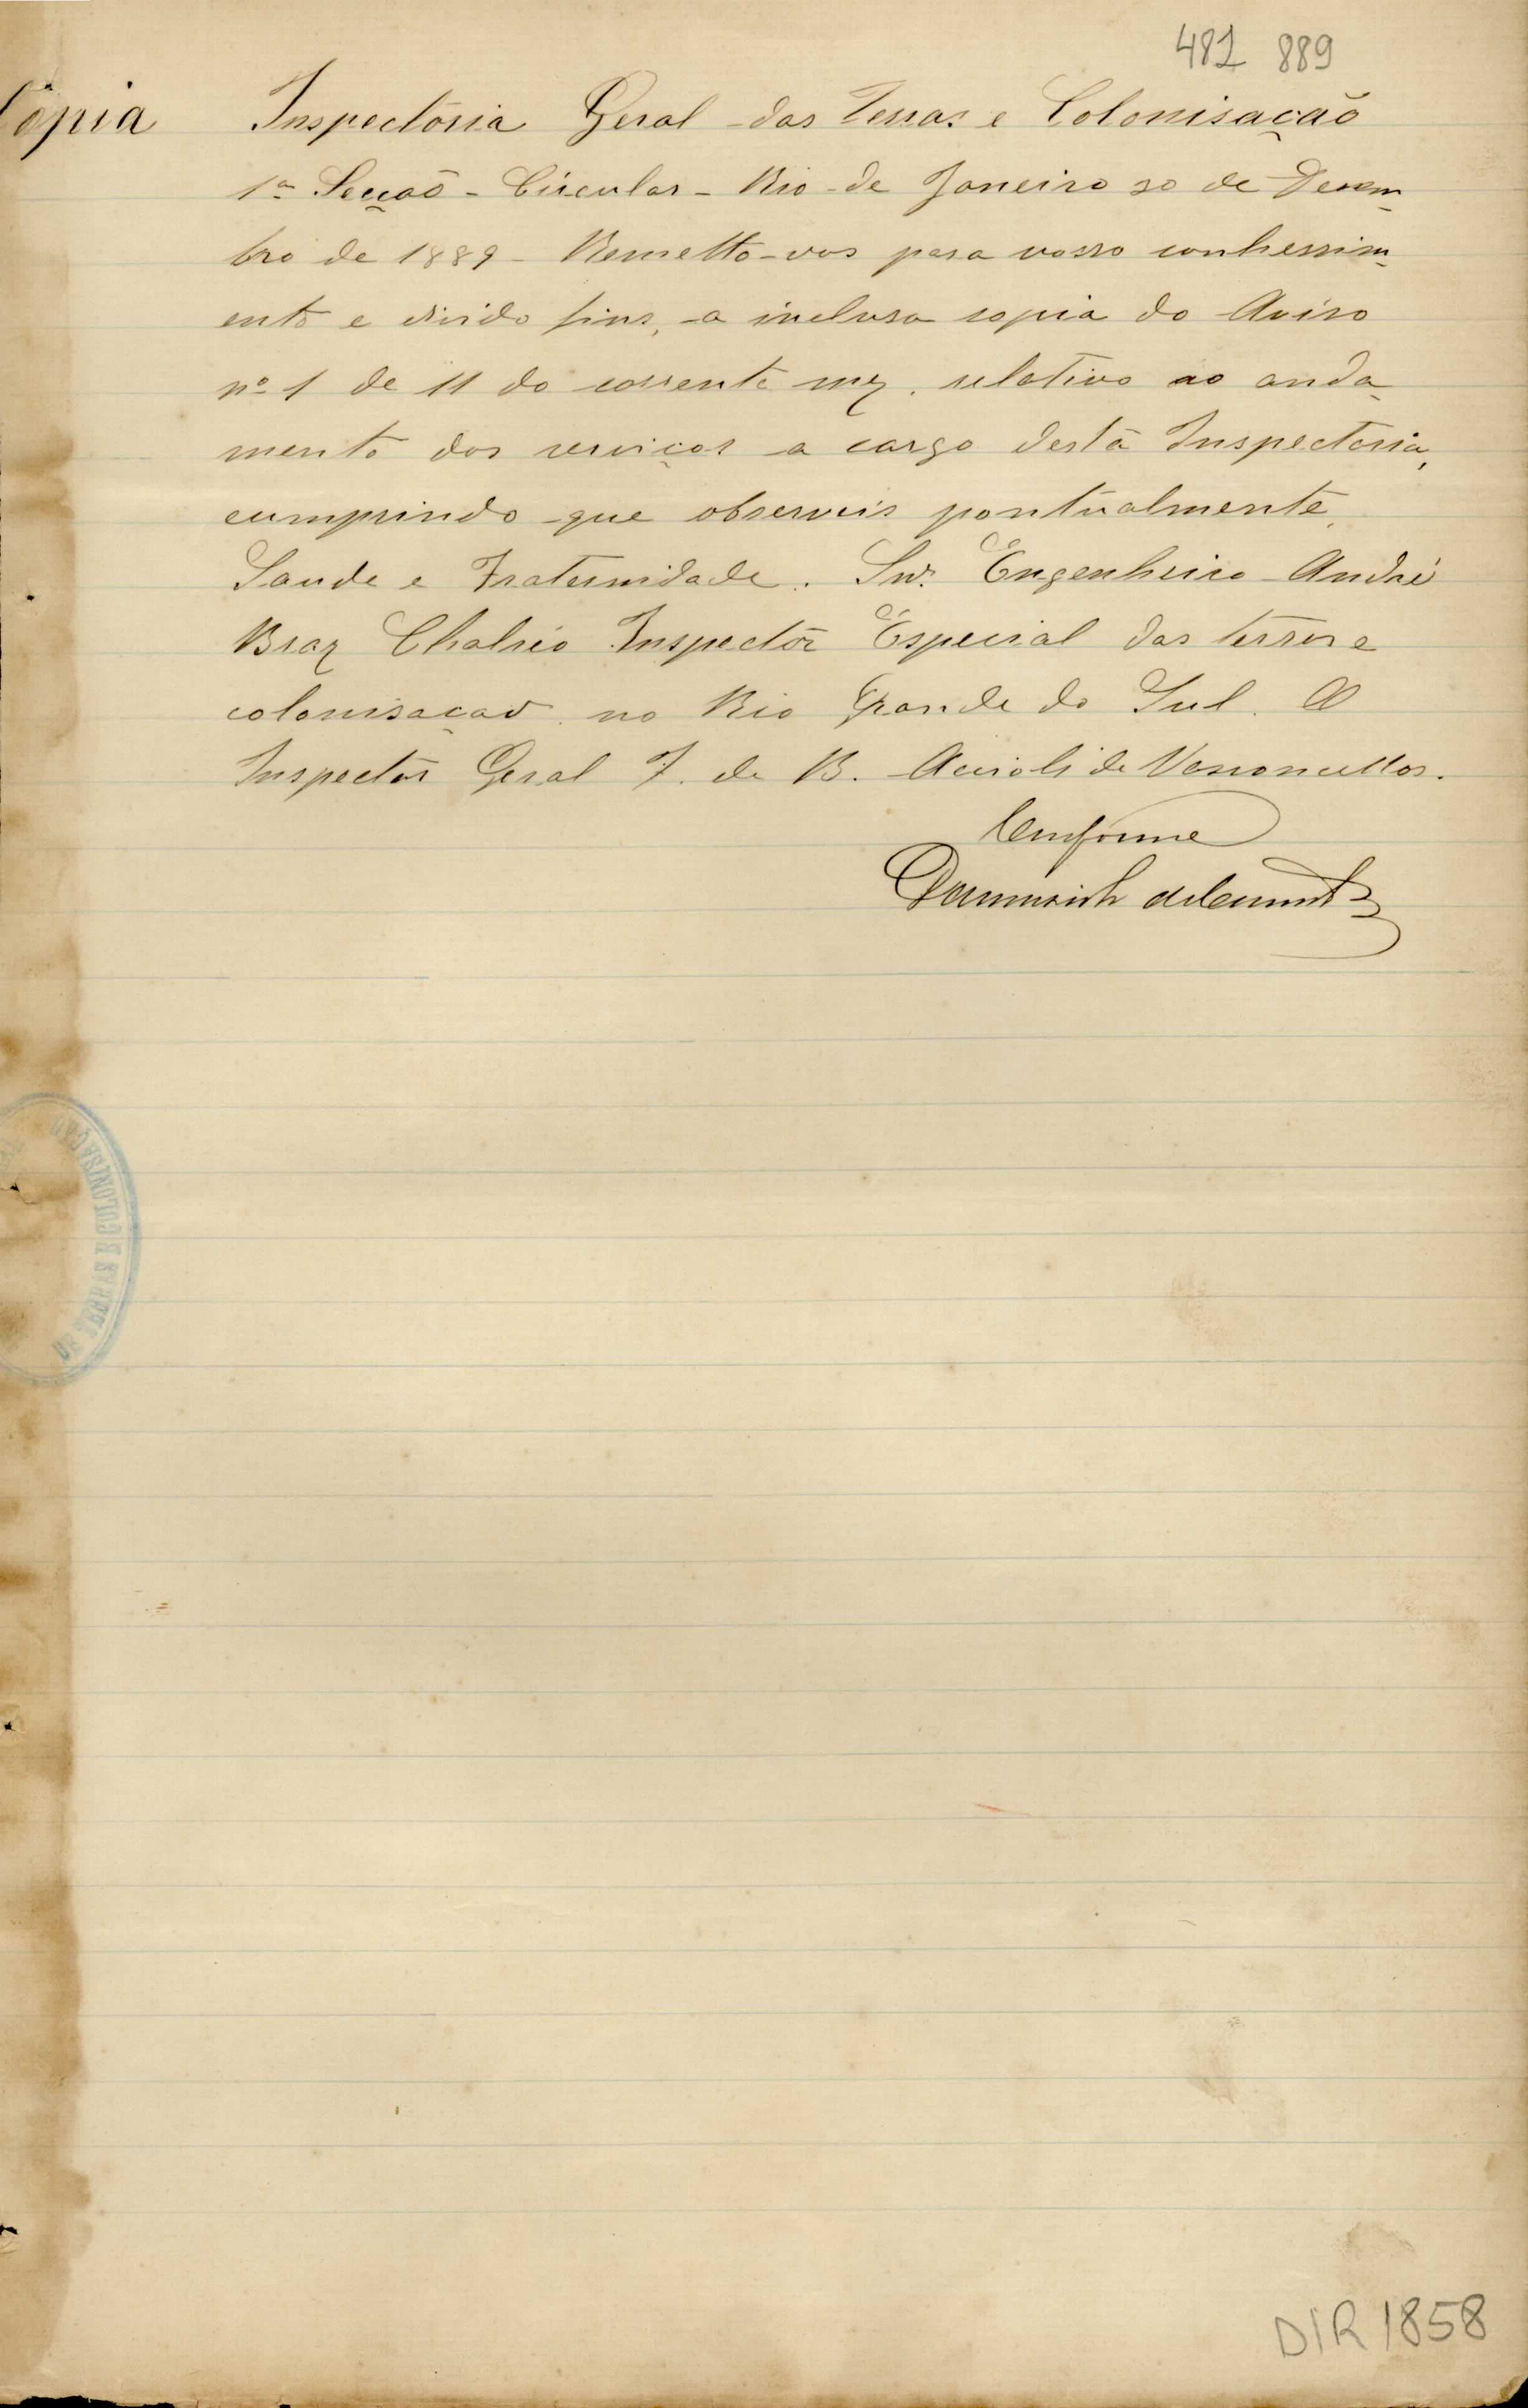 481 889
Cópia
Inspectoria Geral das Terras e Colonisação
1ª Secção - Circular - Rio de Janeiro 20 de Desem-
bro de 1889 - Remetto-vos para vosso conhessim-
ento e divido fins, a inclusa copia do Aviso
nº 1 de 11 do corrente mez. relativo ao anda-
mento dos serviços a cargo desta Inspectoria,
cumprindo que observeis pontualmente,
Saude e Fraternidade. Snr. Engenheiro André
Braz Chalréo Inspector Especial das terras e
colonisaçao no Rio Grande do Sul. O
Inspector Geral F. de B. Accioli de Vasconcellos.
Conforme
DE TERRAS E COLONISAÇÃO
DIR 1858